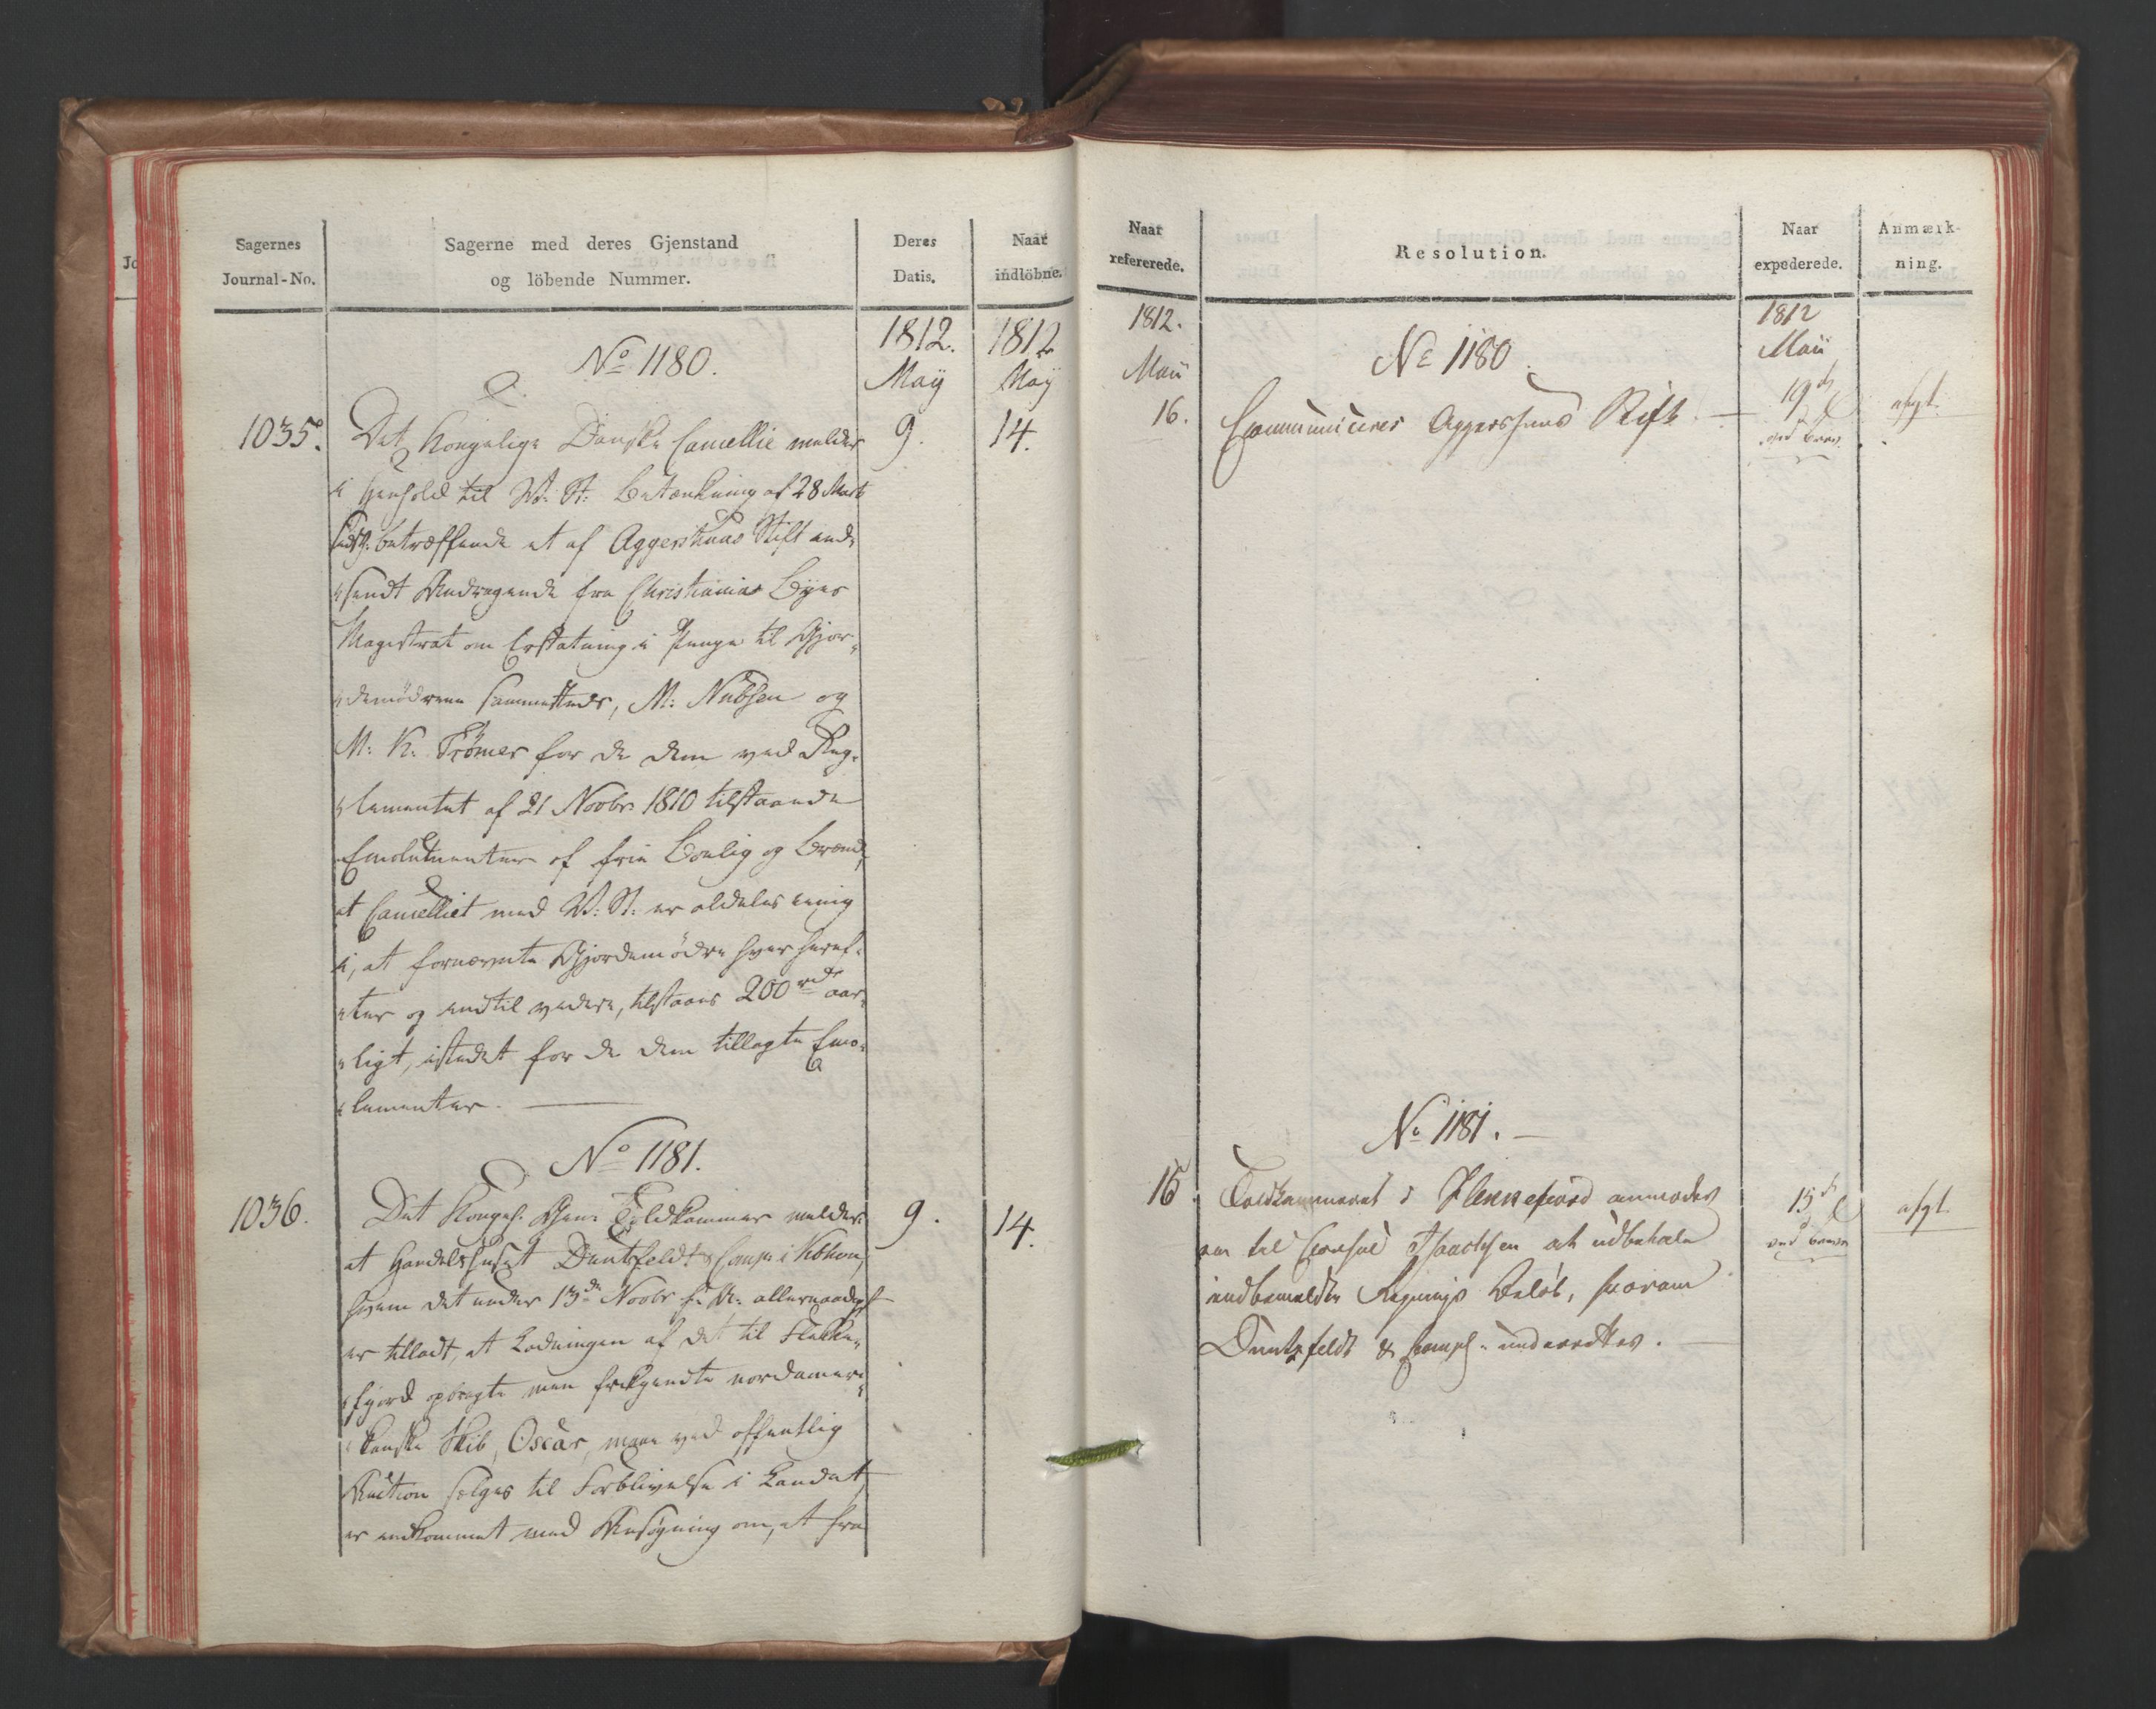 Sagernes
Journal-No.
Sagerne med deres Gjenstand
og löbende Nummer.
Deres
Datis.
Naar
indlöbne.
1812.
May
1812
May
No 1180.
1035.
Det Kongelige Danske Cancellie melder
9.
14.
i Henhold til V: St: Betænkning af 28 Marts
sidstl: betræffende et af Aggershuus Stift ind-
sendt Andragende fra Christiania Byes
Magistrat om Erstatning i Penge til Gjor-
demødrene sammesteds, M: Nübsen og
M: K: Trömer for de dem ved Reg-
lementet af 21 Novbr 1810 tilstaaende
Emolumenter af frie Bolig og Brænde,
at Cancelliet med V: St: er aldeles eenig
i, at fornævnte Gjordemødre hver heref-
ter og indtil videre, tilstaaes 200 rd aar-
ligt, istedet for de dem tillagte Emo-
lumenter.
No 1181.
1036.
Det Kongel. Gen: Toldkammer melder
9.
14.
at Handelshuset Duntzfeldt & Comp: i Kbhvn,
hvem det under 13de Novbr f: A: allernaadigst
er tilladt, at Ladningen af det til Flekke-
fjord opbragte men frikjendte nordameri-
kanske Skib, Oscar, maae ved offentlig
Auction sælges til Forblivelse i Landet,
er indkommet med Ansøgning om, at fra
Naar
refererede.
Resolution.
Naar
expederede.
Anmærk-
ning.
1812.
Maii
1812
Maii
No 1180.
16.
Communiceres Aggershuus Stift
19de
ved Brev
afgt.
No 1181.
15
Toldkammeret i Flekkefiord anmodes
15de
ved Brev
afgt
om til Consul Isaachsen at udbetale
indbemeldte Regnings Beløb, hvorom
Duntzfeldt & Comp: underrettes.